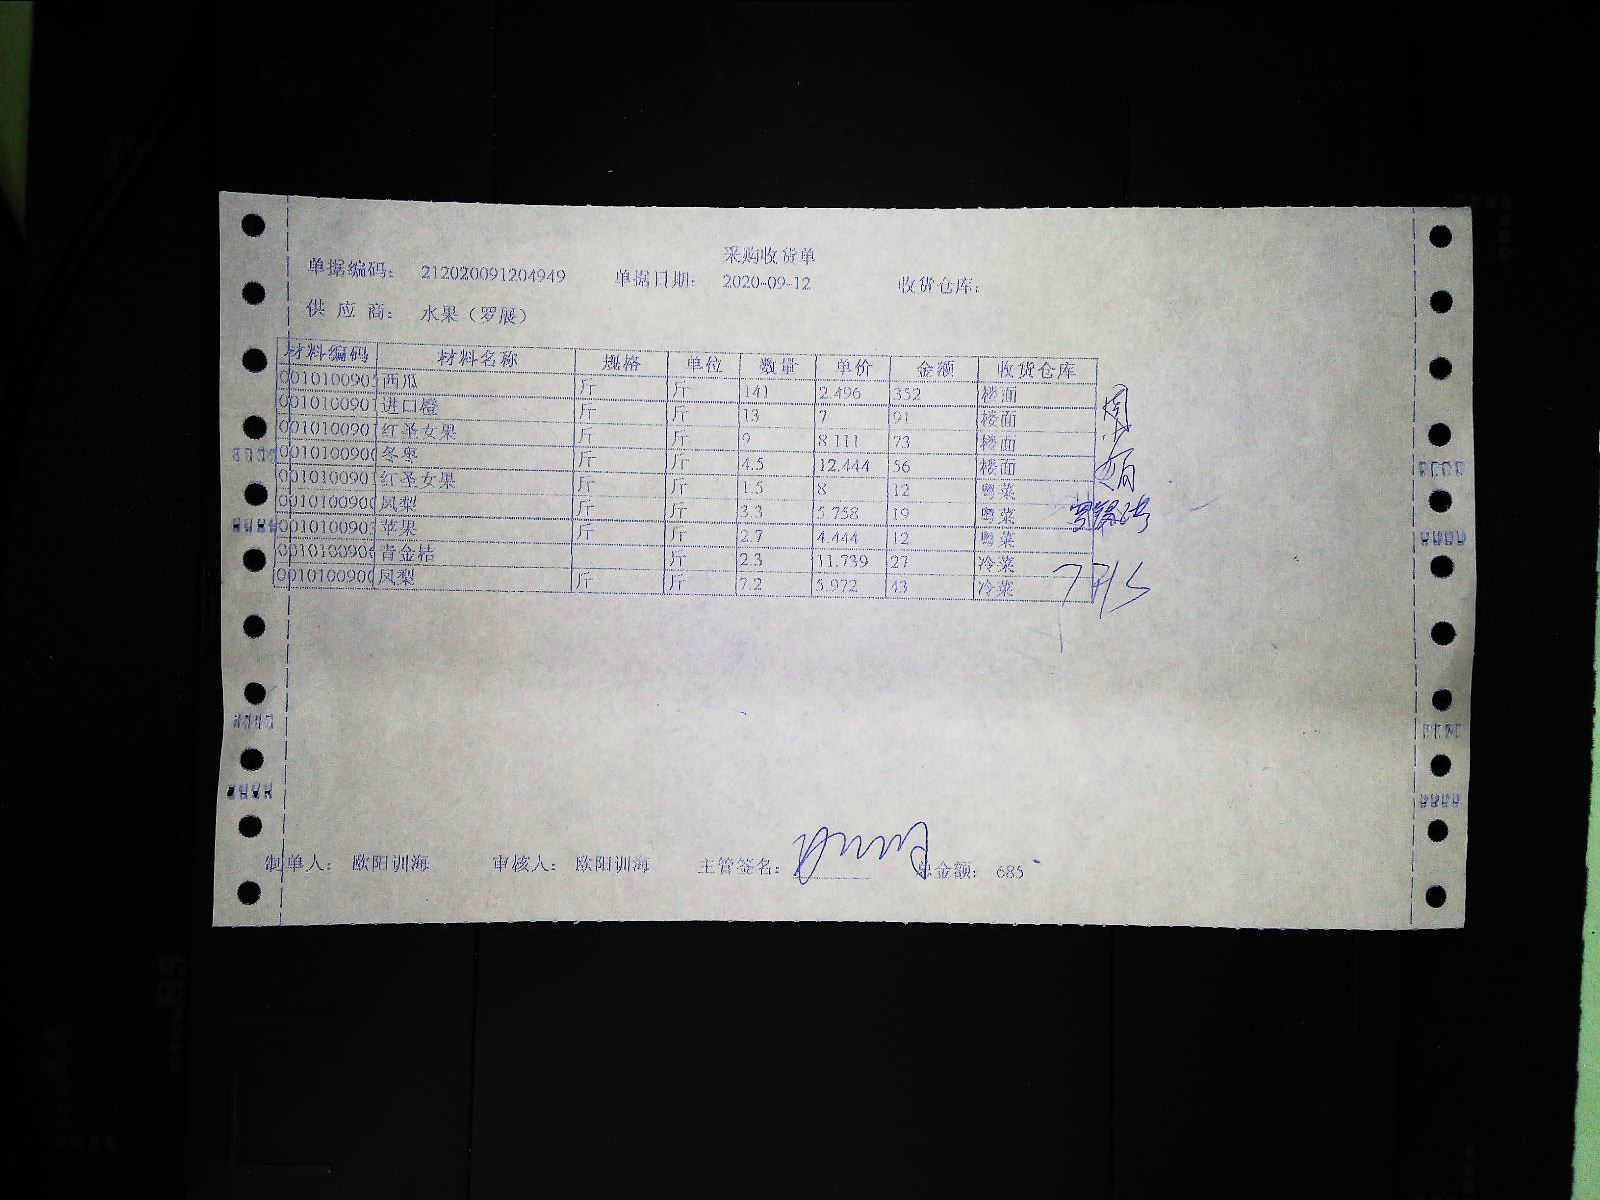 采购收货单
单据编码： 212020091204949 单据日期： 2020-09-12 收货仓库：
供 应 商： 水果（罗展）
材料编码 材料名称 规格 单位 数量 单价 金额 收货仓库
0010100905 西瓜 斤 斤 141 2.496 352 楼面
0010100901 进口橙 斤 斤 13 7 91 楼面
0010100901 红圣女果 斤 斤 9 8.111 73 楼面
0010100900 冬枣 斤 斤 4.5 12.444 56 楼面
0010100901 红圣女果 斤 斤 1.5 8 12 粤菜
0010100900 凤梨 斤 斤 3.3 5.758 19 粤菜
0010100903 苹果 斤 斤 2.7 4.444 12 粤菜
0010100906 青金桔 斤 2.3 11.739 27 冷菜
0010100900 凤梨 斤 斤 7.2 5.972 43 冷菜
制单人： 欧阳训海 审核人： 欧阳训海 主管签名： 总金额： 685